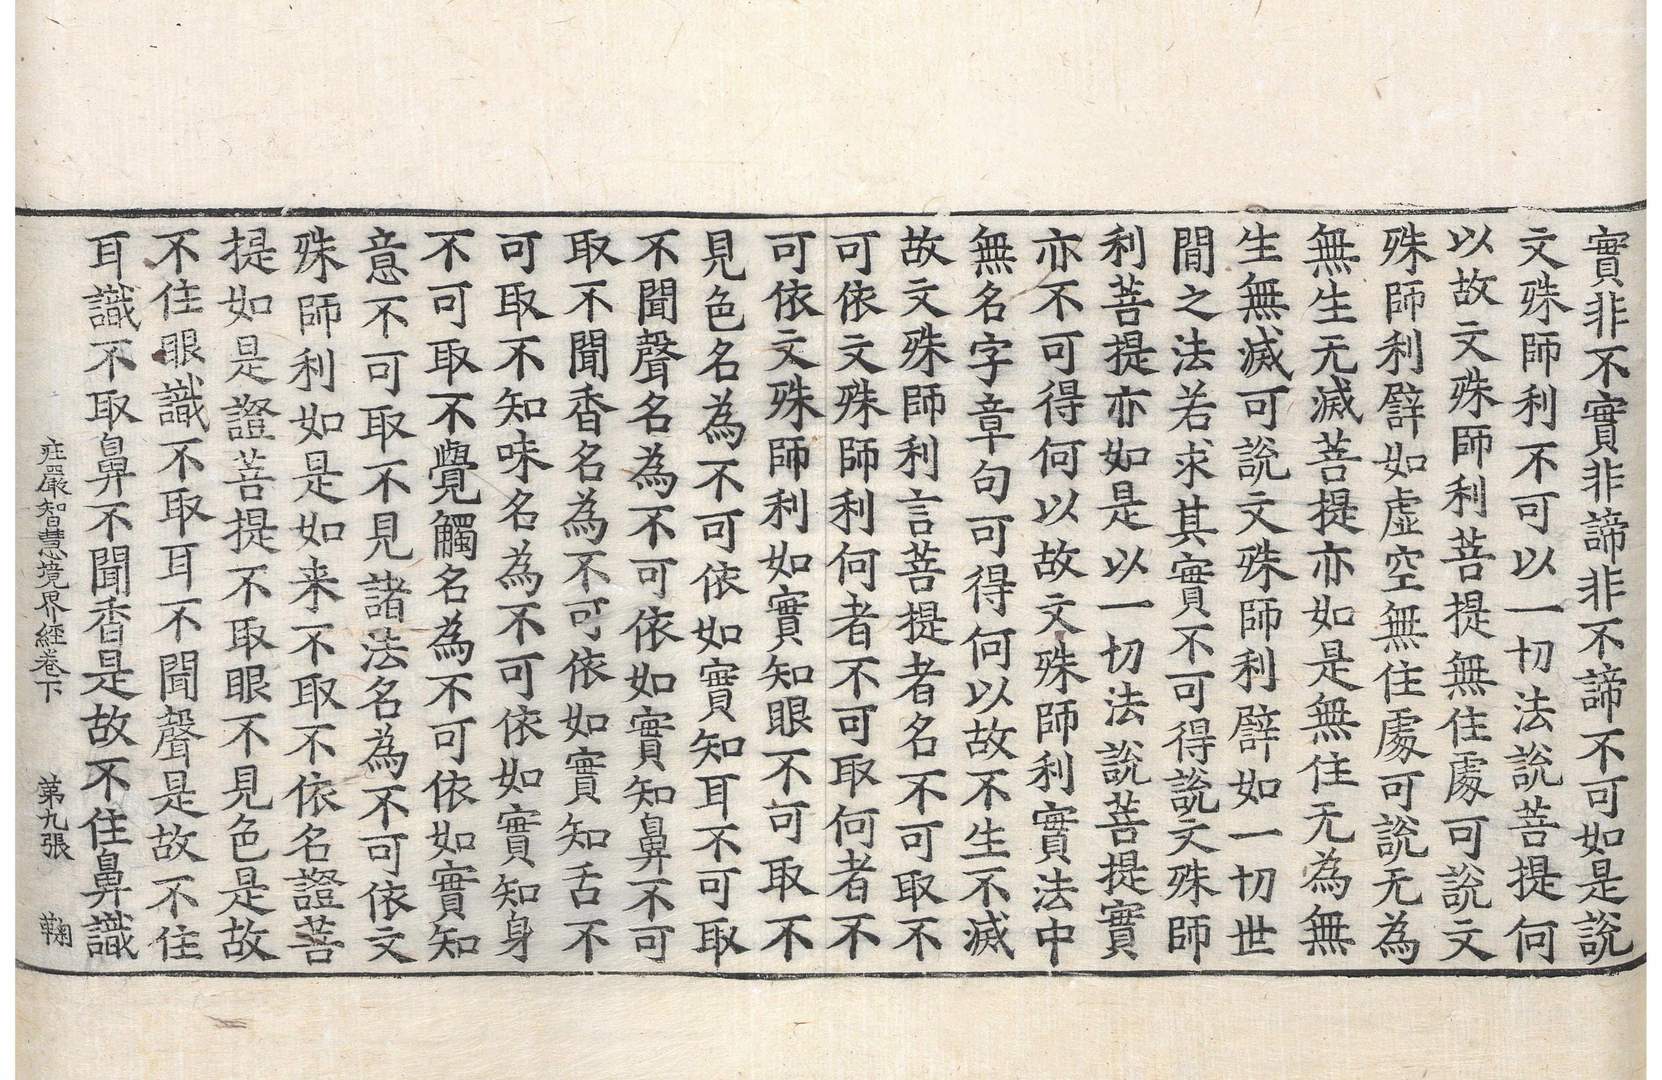 實非不實非諦非不諦不可如是說
文殊師利不可以一切法說菩提何
以故文殊師利菩提無住處可說文
殊師利辟如虛空無住處可說无為
無生无滅菩提亦如是無住无為無
生無滅可說文殊師利辟如一切世
間之法若求其實不可得說文殊師
利菩提亦如是以一切法說菩提實
亦不可得何以故文殊師利實法中
無名字章句可得何以故不生不滅
故文殊師利言菩提者名不可取不
可依文殊師利何者不可取何者不
可依文殊師利如實知眼不可取不
見色名為不可依如實知耳不可取
不聞聲名為不可依如實知鼻不可
取不聞香名為不可依如實知舌不
可取不知味名為不可依如實知身
不可取不覺觸名為不可依如實知
意不可取不見諸法名為不可依文
殊師利如是如来不取不依名證菩
提如是證菩提不取眼不見色是故
不住眼識不取耳不聞聲是故不住
耳識不取鼻不聞香是故不住鼻識
庄嚴智慧境界經卷下 第九張 鞠